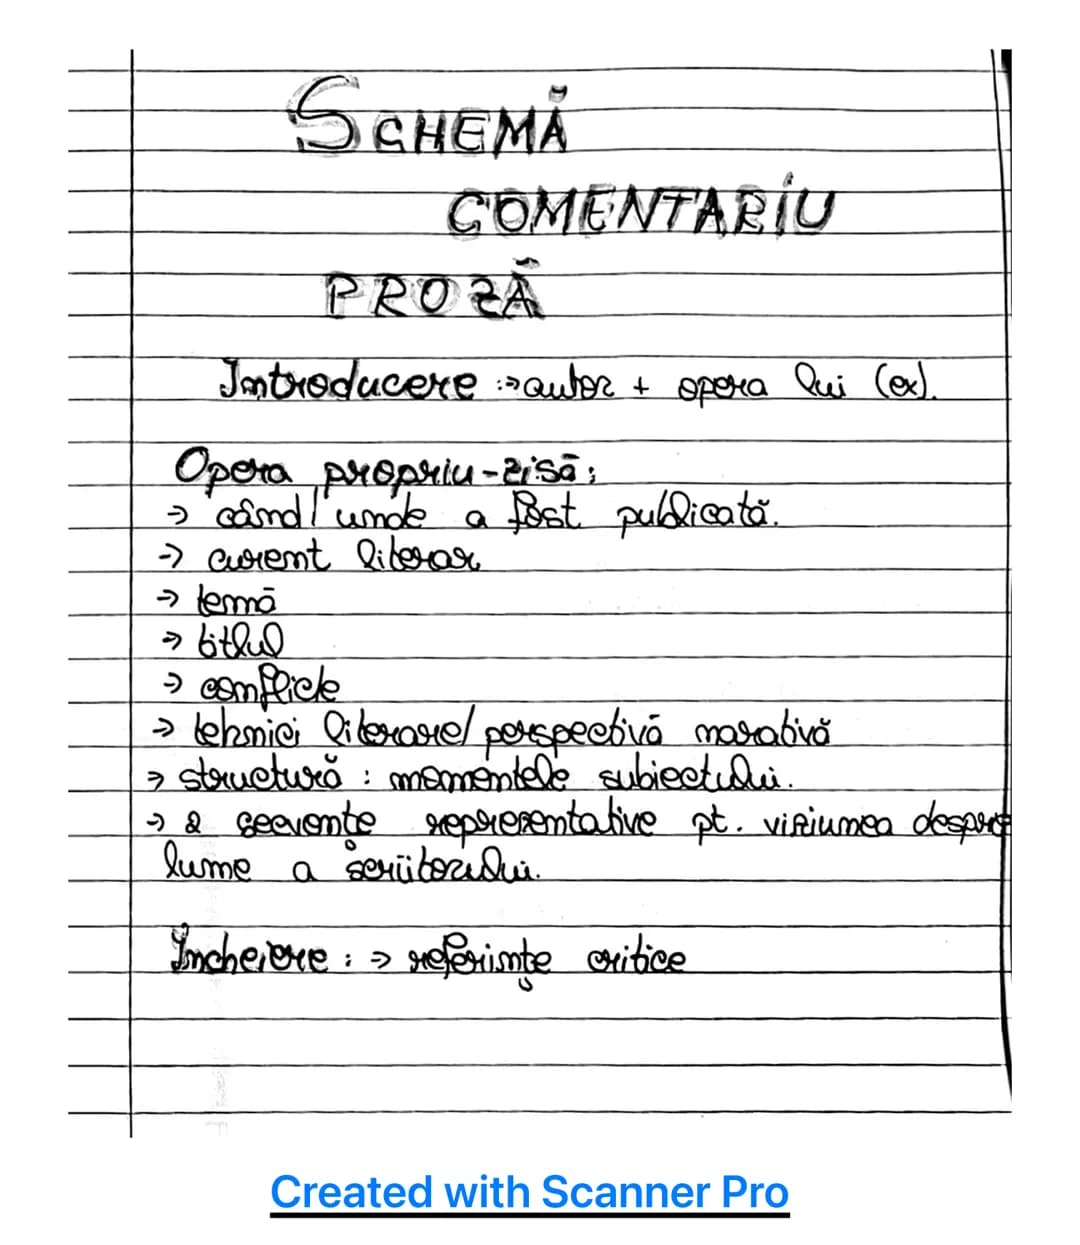 SCHEMĂ
COMENTARIU
PROZĂ
Introducere :→ autor + opera lui (ex).
Opera propriu-zisă:
→ când/ unde a fost publicată.
→ curent literar
→ temă
→ titlul
→ conflicte
→ tehnici literare/ perspectivă narativă
→ structură : momentele subiectului.
→ 2 secvențe reprezentative pt. viziunea despre
lume a scriitorului.
Încheiere : → referiințe critice
Created with Scanner Pro